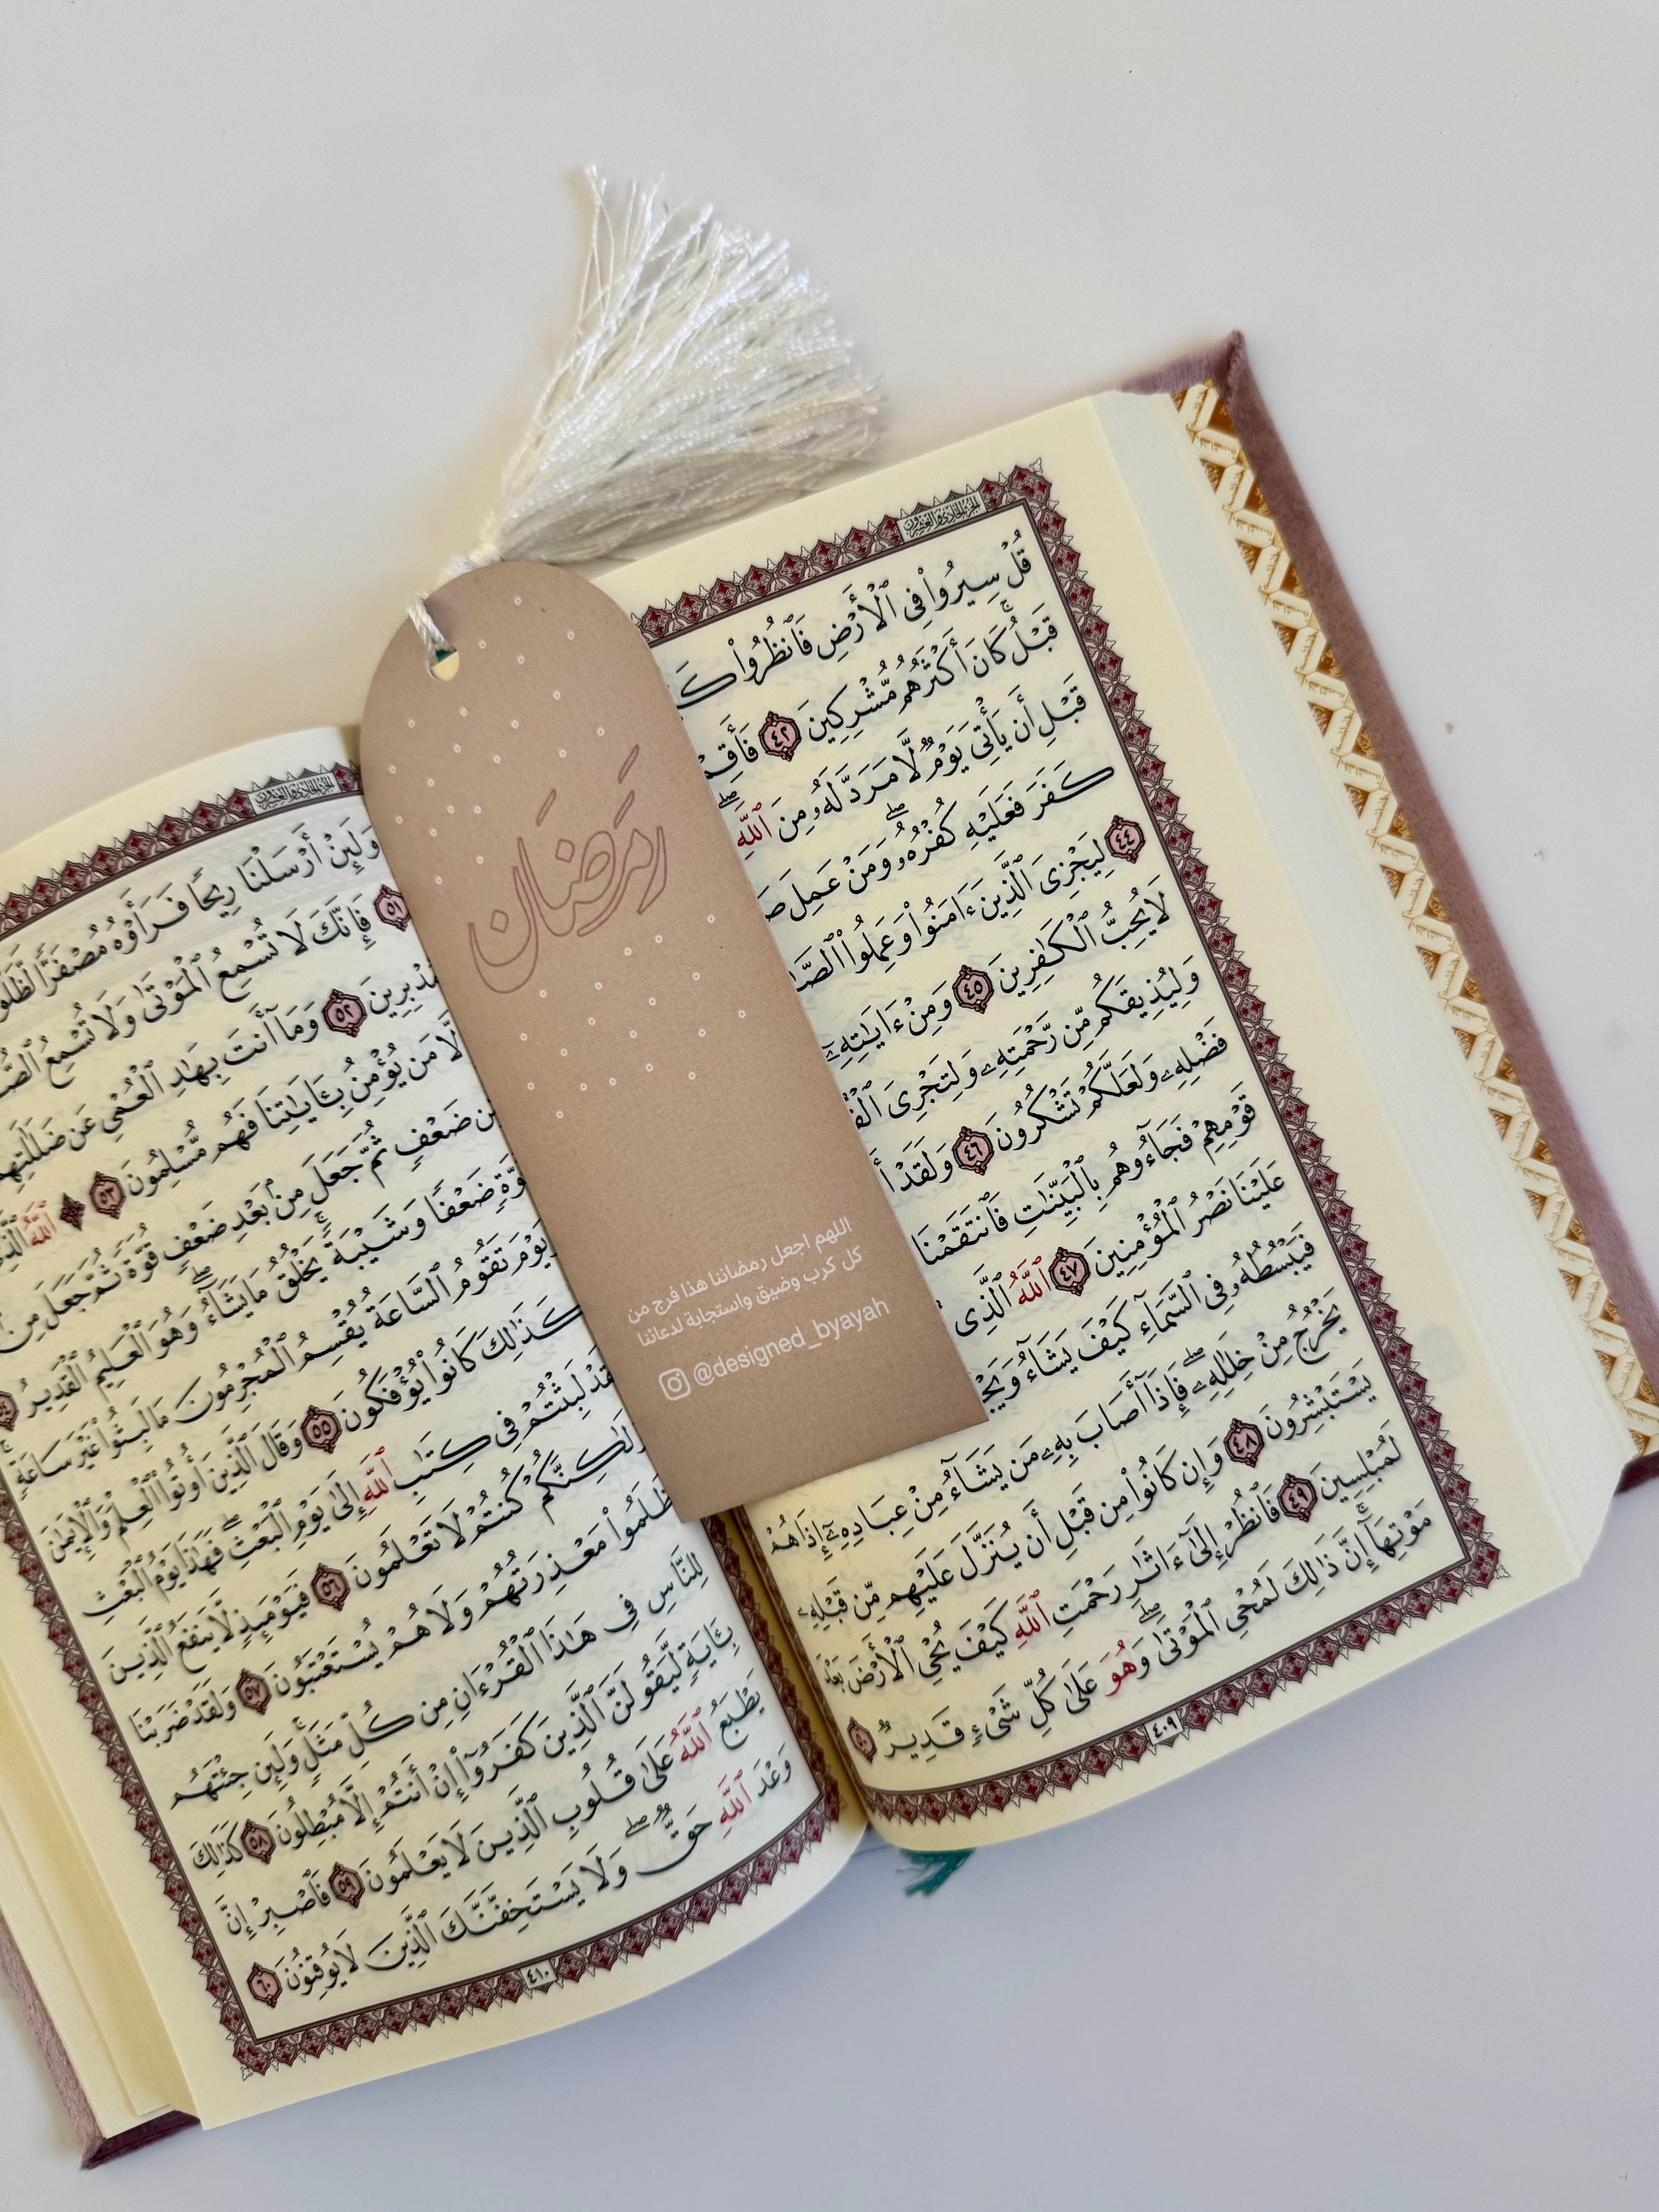 الجزء الحادي والعشرون
قُلْ سِيرُوا۟ فِى ٱلْأَرْضِ فَٱنظُرُوا۟ كَ
قَبْلُ كَانَ أَكْثَرُهُم مُّشْرِكِينَ ٤٢ فَأَقِمْ
قَبْلِ أَن يَأْتِىَ يَوْمٌ لَّا مَرَدَّ لَهُۥ مِنَ ٱللَّهِ
كَفَرَ فَعَلَيْهِ كُفْرُهُۥ وَمَنْ عَمِلَ صَ
٤٤ لِيَجْزِىَ ٱلَّذِينَ ءَامَنُوا۟ وَعَمِلُوا۟ ٱلصَّـٰ
لَا يُحِبُّ ٱلْكَـٰفِرِينَ ٤٥ وَمِنْ ءَايَـٰتِهِۦ
وَلِيُذِيقَكُم مِّن رَّحْمَتِهِۦ وَلِتَجْرِىَ ٱلْفُ
فَضْلِهِۦ وَلَعَلَّكُمْ تَشْكُرُونَ ٤٦ وَلَقَدْ أَ
قَوْمِهِمْ فَجَآءُوهُم بِٱلْبَيِّنَـٰتِ فَٱنتَقَمْنَا
عَلَيْنَا نَصْرُ ٱلْمُؤْمِنِينَ ٤٧ ٱللَّهُ ٱلَّذِى
فَيَبْسُطُهُۥ فِى ٱلسَّمَآءِ كَيْفَ يَشَآءُ وَيَجْ
يَخْرُجُ مِنْ خِلَـٰلِهِۦ ۖ فَإِذَآ أَصَابَ بِهِۦ مَن يَشَآءُ مِنْ عِبَادِهِۦٓ إِذَا هُمْ
يَسْتَبْشِرُونَ ٤٨ وَإِن كَانُوا۟ مِن قَبْلِ أَن يُنَزَّلَ عَلَيْهِم مِّن قَبْلِهِۦ
لَمُبْلِسِينَ ٤٩ فَٱنظُرْ إِلَىٰٓ ءَاثَـٰرِ رَحْمَتِ ٱللَّهِ كَيْفَ يُحْىِ ٱلْأَرْضَ بَعْدَ
مَوْتِهَآ ۚ إِنَّ ذَٰلِكَ لَمُحْىِ ٱلْمَوْتَىٰ ۖ وَهُوَ عَلَىٰ كُلِّ شَىْءٍ قَدِيرٌ ٥٠
٤٠٩
رَمَضَان
اللهم اجعل رمضاننا هذا فرج من
كل كرب وضيق واستجابة لدعائنا
@designed_byayah
الجزء الحادي والعشرون
وَلَئِنْ أَرْسَلْنَا رِيحًا فَرَأَوْهُ مُصْفَرًّا لَّظَلُّو
٥١ فَإِنَّكَ لَا تُسْمِعُ ٱلْمَوْتَىٰ وَلَا تُسْمِعُ ٱلصُّ
مُدْبِرِينَ ٥٢ وَمَآ أَنتَ بِهَـٰدِ ٱلْعُمْىِ عَن ضَلَـٰلَتِهِ
لَّا مَن يُؤْمِنُ بِـَٔايَـٰتِنَا فَهُم مُّسْلِمُونَ ٥٣ ٱللَّهُ ٱلَّذِ
مِّن ضَعْفٍ ثُمَّ جَعَلَ مِنۢ بَعْدِ ضَعْفٍ قُوَّةً ثُمَّ جَعَلَ مِنۢ
وَّةٍ ضَعْفًا وَشَيْبَةً ۚ يَخْلُقُ مَا يَشَآءُ ۖ وَهُوَ ٱلْعَلِيمُ ٱلْقَدِيرُ ٥٤
يَوْمَ تَقُومُ ٱلسَّاعَةُ يُقْسِمُ ٱلْمُجْرِمُونَ مَا لَبِثُوا۟ غَيْرَ سَاعَةٍ ۚ
كَذَٰلِكَ كَانُوا۟ يُؤْفَكُونَ ٥٥ وَقَالَ ٱلَّذِينَ أُوتُوا۟ ٱلْعِلْمَ وَٱلْإِيمَـٰنَ
قَدْ لَبِثْتُمْ فِى كِتَـٰبِ ٱللَّهِ إِلَىٰ يَوْمِ ٱلْبَعْثِ ۖ فَهَـٰذَا يَوْمُ ٱلْبَعْثِ
لَـٰكِنَّكُمْ كُنتُمْ لَا تَعْلَمُونَ ٥٦ فَيَوْمَئِذٍ لَّا يَنفَعُ ٱلَّذِينَ
ظَلَمُوا۟ مَعْذِرَتُهُمْ وَلَا هُمْ يُسْتَعْتَبُونَ ٥٧ وَلَقَدْ ضَرَبْنَا
لِلنَّاسِ فِى هَـٰذَا ٱلْقُرْءَانِ مِن كُلِّ مَثَلٍ ۚ وَلَئِن جِئْتَهُم
بِـَٔايَةٍ لَّيَقُولَنَّ ٱلَّذِينَ كَفَرُوٓا۟ إِنْ أَنتُمْ إِلَّا مُبْطِلُونَ ٥٨ كَذَٰلِكَ
يَطْبَعُ ٱللَّهُ عَلَىٰ قُلُوبِ ٱلَّذِينَ لَا يَعْلَمُونَ ٥٩ فَٱصْبِرْ إِنَّ
وَعْدَ ٱللَّهِ حَقٌّ ۖ وَلَا يَسْتَخِفَّنَّكَ ٱلَّذِينَ لَا يُوقِنُونَ ٦٠
٤١٠